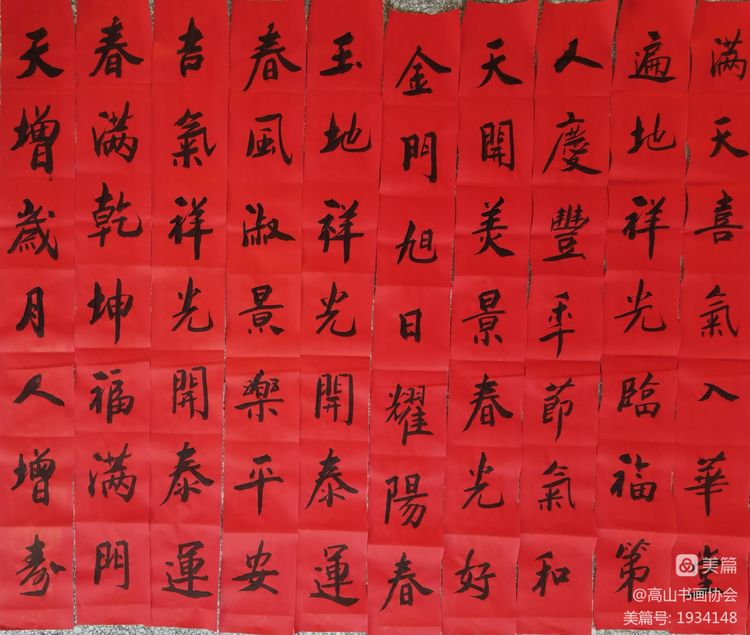 满天喜氣入華堂
遍地祥光臨福第
人慶豐年節氣和
天開美景春光好
金門旭日耀陽春
玉地祥光開泰運
春風淑景樂平安
吉氣祥光開泰運
春满乾坤福满門
天增歲月人增寿
美篇
@高山书画协会
美篇号: 1934148